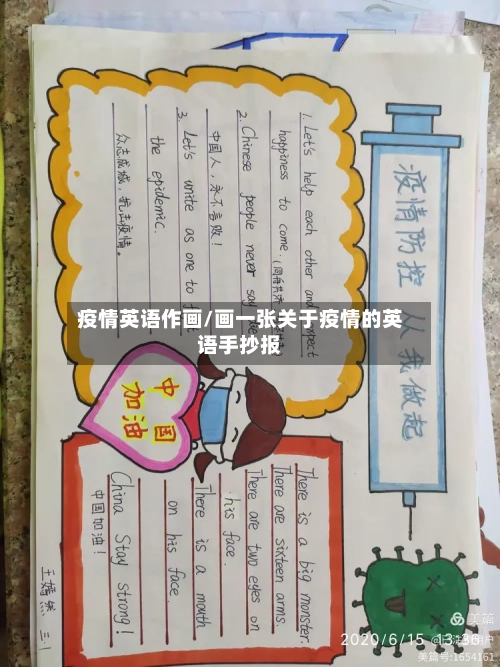 疫情防控 从我做起
1. Let's help each other and expect
happiness to come.
2. Chinese people never say
中国人，永不言败！
3. Let's unite as one to
the epidemic.
众志成城，抗击疫情。
疫情英语作画/画一张关于疫情的英
语手抄报
中国
加油
There is a big monster.
There are sixteen arms.
There are two eyes on
his face.
There is a mouth
on his face.
China Stay strong!
中国加油！
三、1
2020/6/15 13:36
美篇
美篇号:1654161